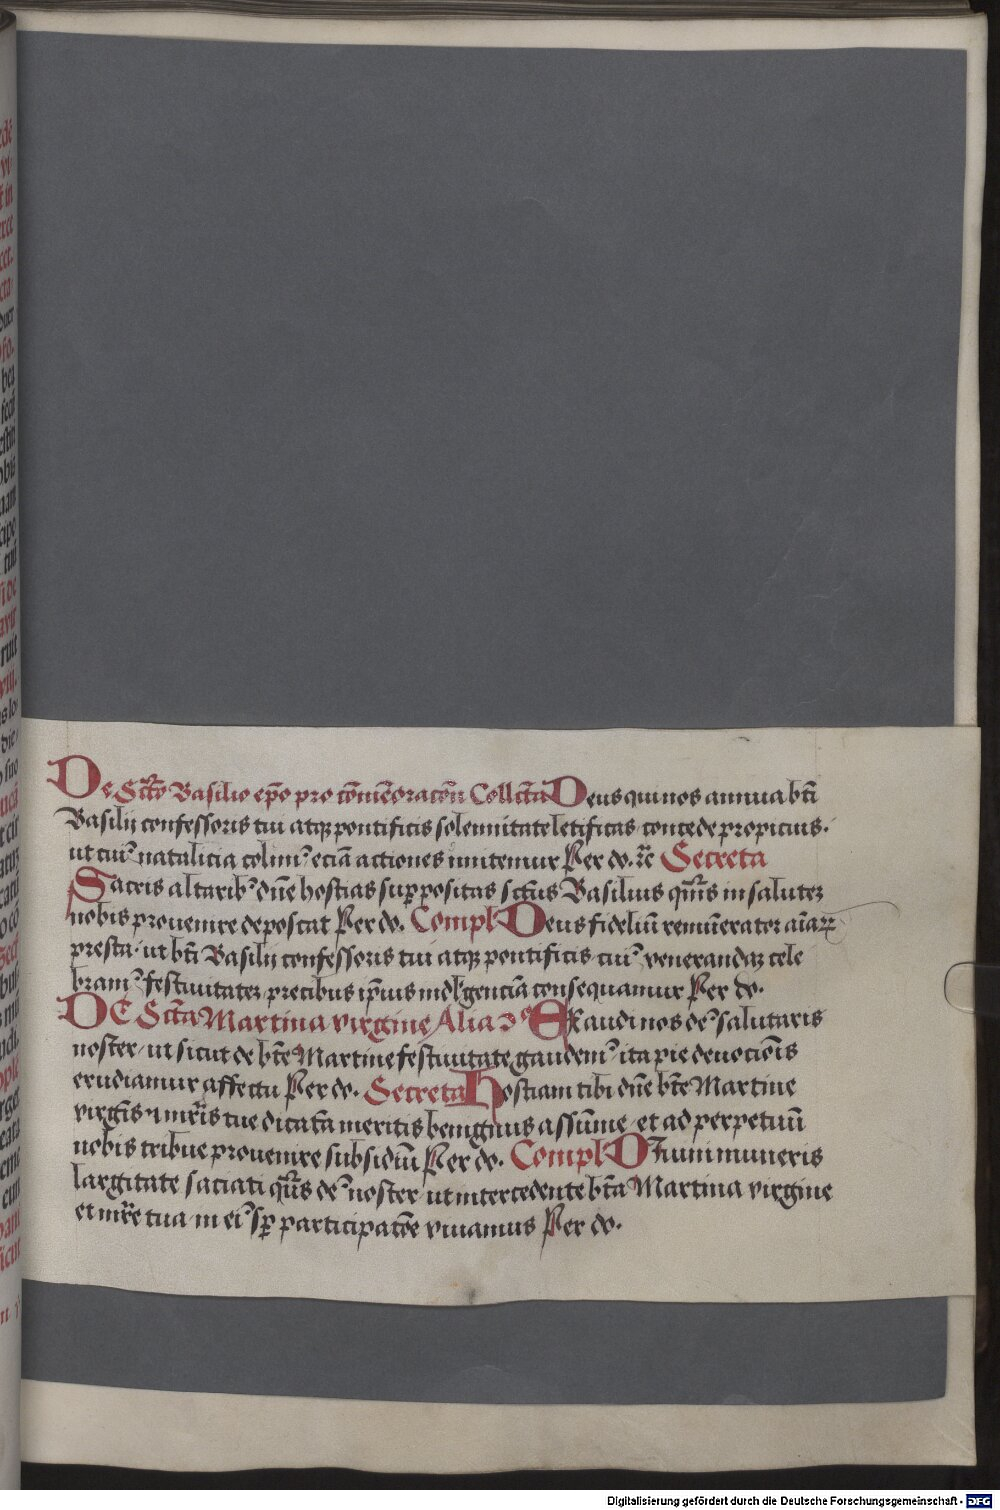 De Scto Basilio epo pro comemoracon Collcta Deus qui nos annua bti
Basilij confessoris tui atqz pontificis solennitate letificas concede propicius·
ut cui9 natalicia colim9 eciā actiones imitemur Per do. rē Secreta
Sacris altarib9 dn̄e hostias suppositas sctus Basilius qs̄ in salutez
nobis prouenire deposcat Per do. Compl Deus fideliū remunerator aīaꝝ
presta· ut bti Basilij confessoris tui atqz pontificis cui9 venerandaz cele
bram9 festiuitatez precibus ip̄ius indlgenciā consequamur Per do.
DE Scta Martina virgine Alia de9 Exaudi nos de9 salutaris
noster ut sicut de bte Martine festiuitate gaudem9 ita pie deuocōis
erudiamur affectu Per do. Secreta Hostiam tibi dn̄e bte Martine
virgis ⁊ mr̄is tue dicatā meritis benignus assūme et ad perpetuū
nobis tribue prouenire subsidiū Per do. Compl Diuini muneris
largitate saciati qs̄ de9 noster ut intercedente bta Martina virgine
et mr̄e tua in ei9 sp participatōe viuamus Per do.
Digitalisierung gefördert durch die Deutsche Forschungsgemeinschaft - DFG